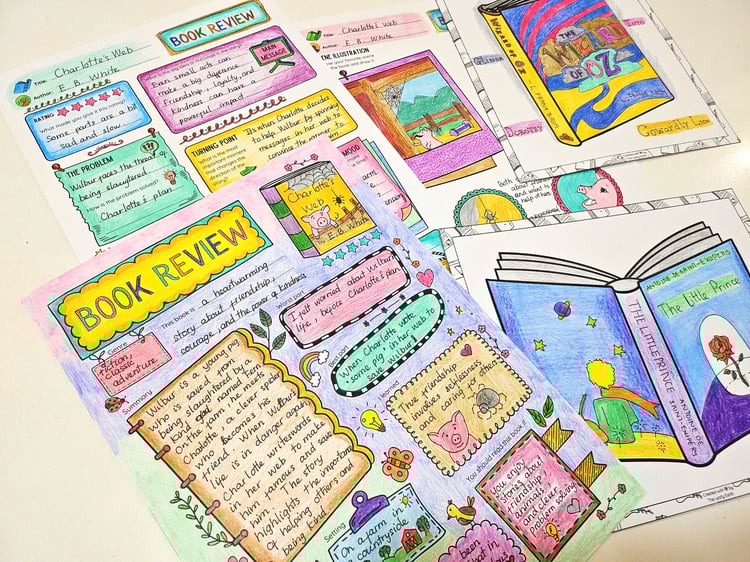 BOOK REVIEW
Title: Charlotte's Web
Author: E. B. White
RATING
What made you give it this rating?
Some parts are a bit
sad and slow.
MAIN
MESSAGE
Even small acts can
make a big difference.
Friendship, loyalty, and
kindness can have a
powerful impact
THE PROBLEM
Wilbur faces the threat of
being slaughtered
How is the problem solved?
Charlotte's plan
TURNING POINT
What is the
most important
moment that
changes the
direction of the
story?
It's when Charlotte decides
to help Wilbur by spinning
messages in her web to
convince the
Title: Charlotte's Web
Author: E. B. White
ENE ILLUSTRATION
your favorite scene
the book and draw it.
MOOD
Both
about
and want to
help others
Glinda
Toto
Dorothy
Cowardly Lion
THE
WIZARD
OF OZ
WIZARD OF OZ
BOOK REVIEW
This book is a heartwarming
story about friendship,
courage, and the power of kindness
Charlotte's
Web
E. B. White
Genre
fiction,
classic
adventure
Worst part
I felt worried about Wilbur's
life, before Charlotte's plan
Best part
When Charlotte wrote
some pig in her web to
save Wilbur
Summary
Wilbur is a young pig
who is saved from
being slaughtered by a
kind girl named Fern
On the farm he meets
Charlotte, a clever spider
who becomes his
friend. When Wilbur's
life is in danger again,
Charlotte writes words
in her web to make
him famous and save
him. The story
highlights the importance
of helping others and
being kind
I learned
The friendship
involves selflessness
and caring for others
You should read this book if
you enjoy
stories about
friendship
animals
and clever
problem solving
Setting
On a farm in
countryside
been
THE LITTLE PRINCE
ANTOINE DE
SAINT-EXUPÉRY
ANTOINE DE SAINT-EXUPÉRY
The Little Prince
Created with ♥ by